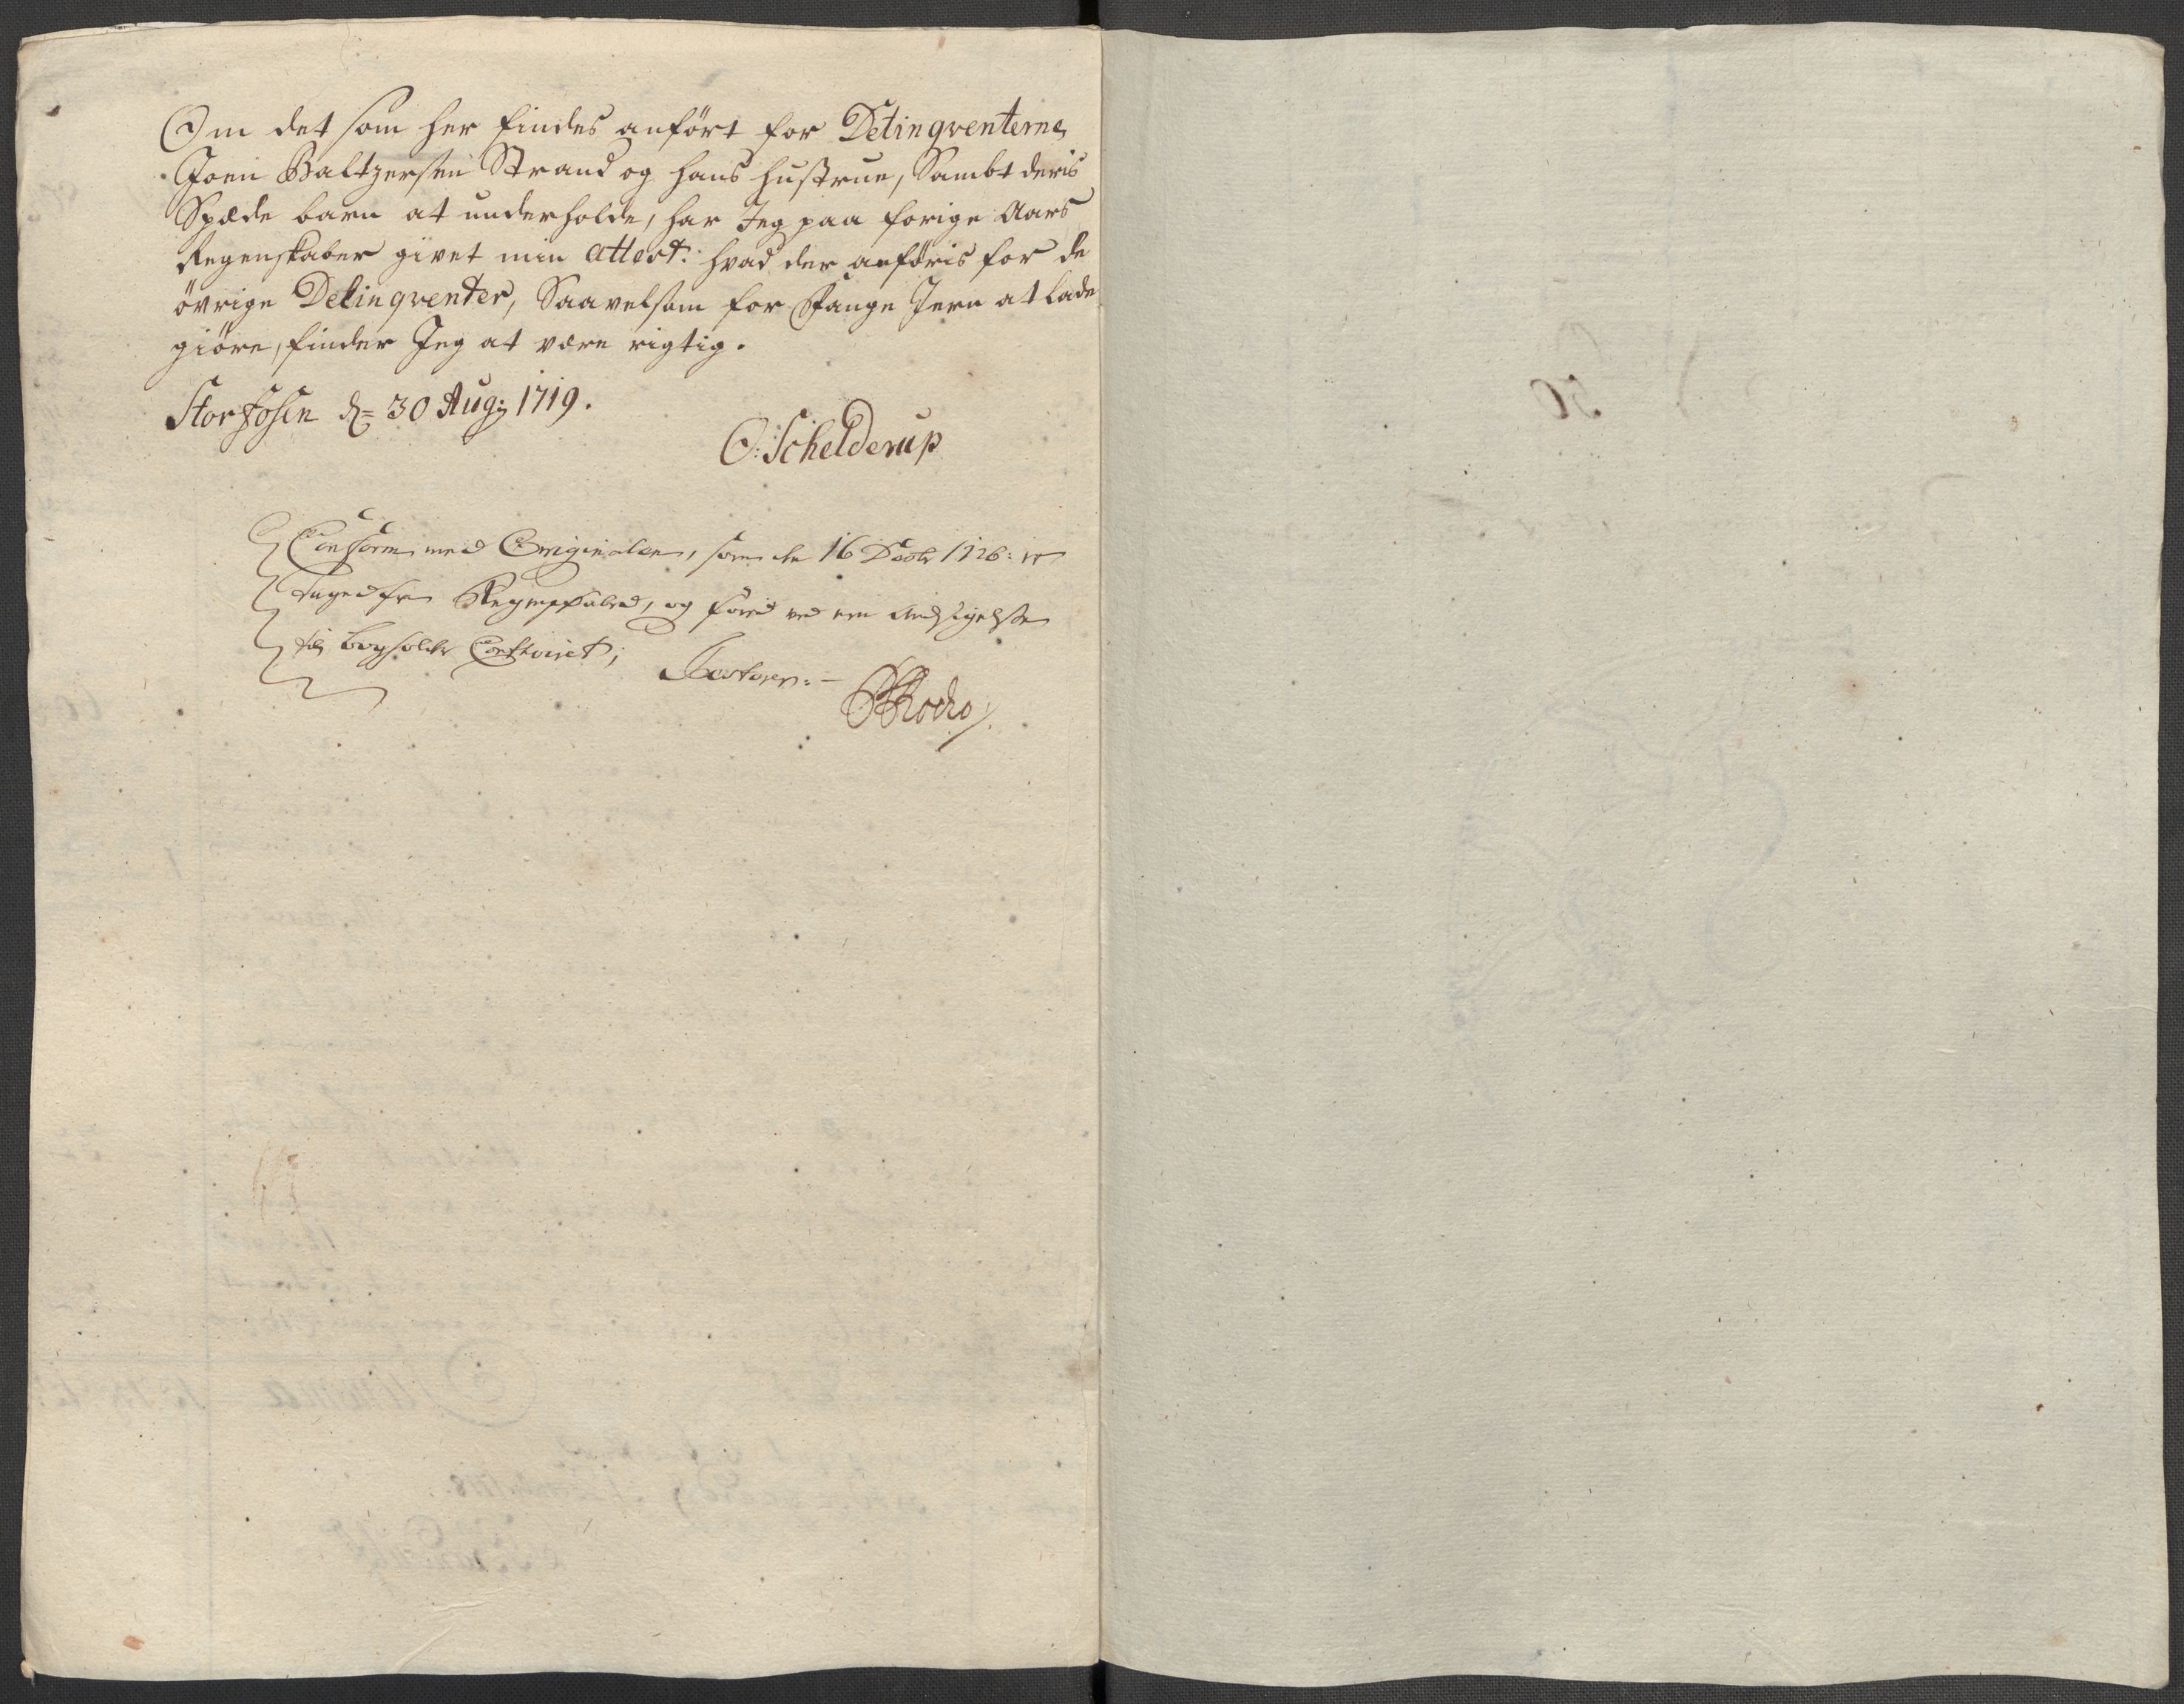 Om det som her findes anført for Delinqventerne
Joen Baltzersen Strand og hans hustrue, Sambt deris
Spæde barn at underholde, har Jeg paa forige Aars
Regenskaber givet min attest: hvad der anføris for de
øvrige Delinqventer, Saavelsom for Fange Jern at lade
giøre, finder Jeg at være rigtig.
Storfosen d= 30 Aug: 1719.
O: Schelderup
Conform med Originalen, som den 16 Decbr 1726: er
taged fra Regenskabed, og förd ved en Andtegnelse
til bogholder Contoiret;
Testerer: